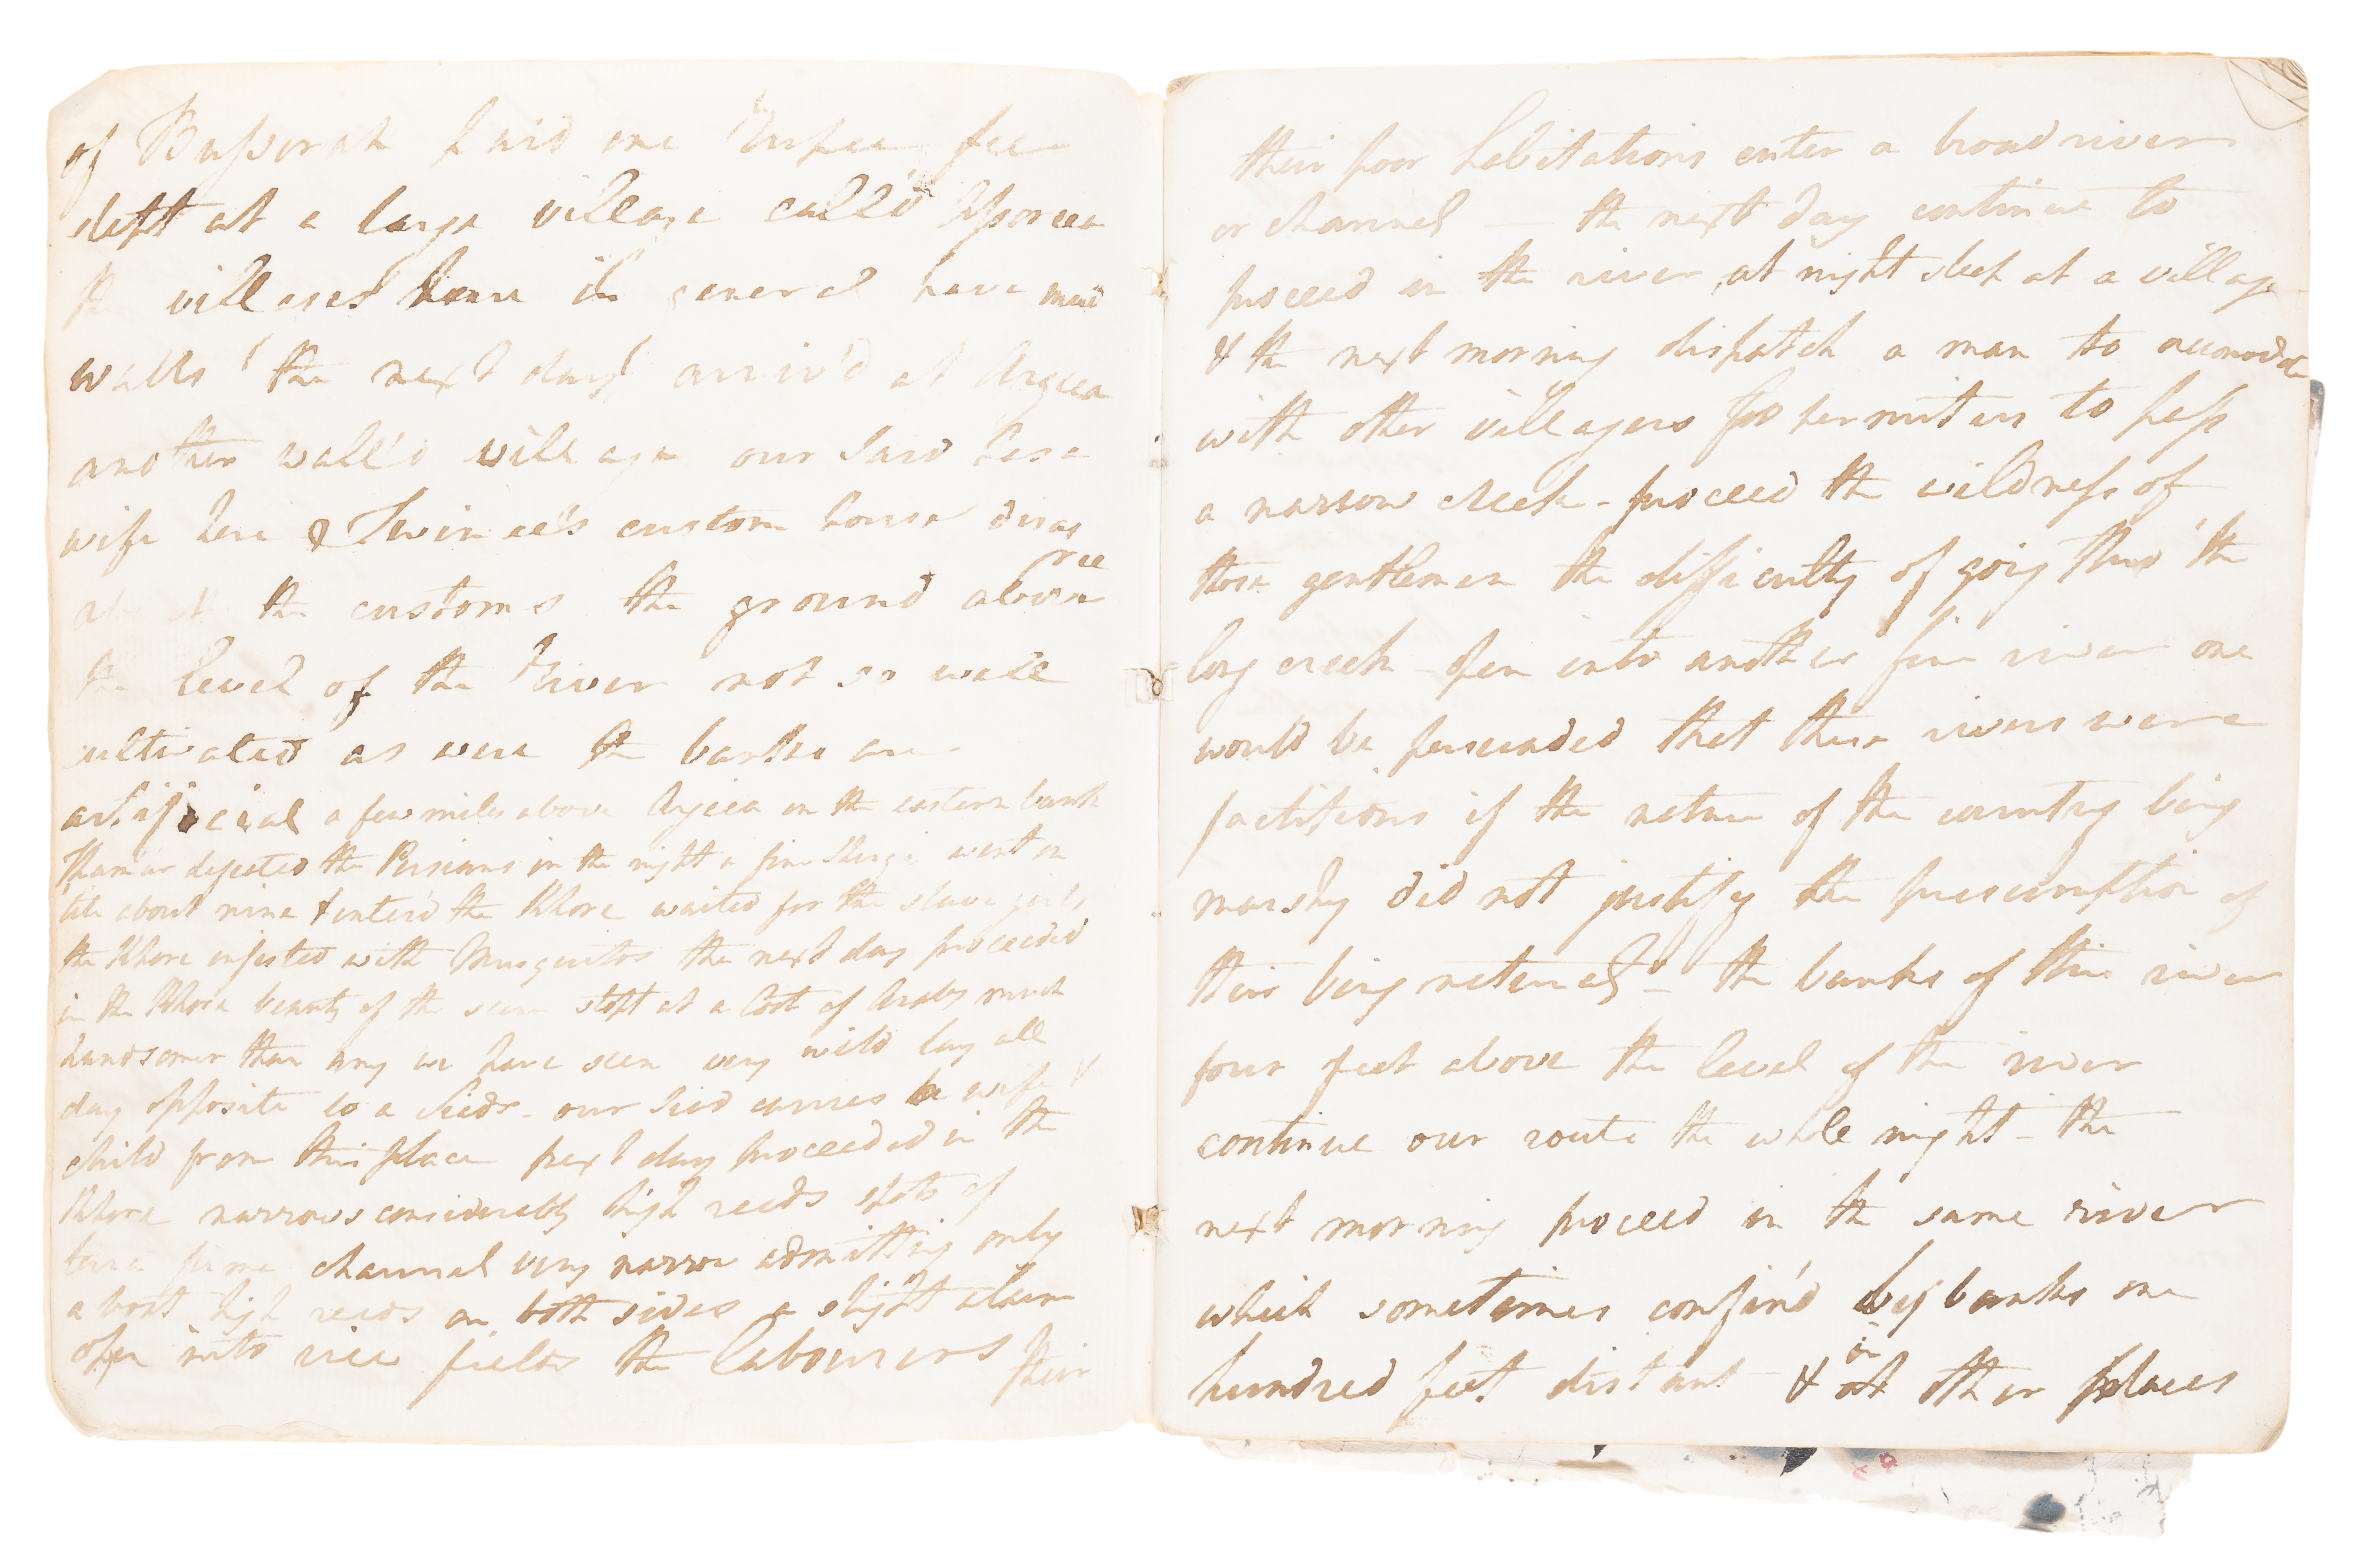 of Bussorah paid one Rupee fee
slept at a large village call'd
the villages here in general have mud
walls the next day arriv'd at Argeea
another wall'd village our Said has a
wife here & custom house disag
ree
about the customs the ground above
the level of the River not so well
cultivated as were the banks are
artificial a few miles above Argeea on the eastern bank
Thamar defeated the Persians in the night a fine went on
till about nine & enter'd the Khore waited for the slave girls
the Khore infested with Musquitos the next day proceeded
in the Khore beauty of the scene slept at a Coot of Arabs much
handsomer than any we have seen very wild lay all
day opposite to a - our Sied carries a wife &
child from this place next day proceeded in the
Khore narrows considerably high reeds spots of
terra firma channel very narrow admitting only
a boat high reeds on both sides a slight alarm
open into rice fields the labourers their
their poor habitations enter a broad river
or channel — the next day continue to
proceed in the river, at night sleep at a village
& the next morning dispatch a man to
with other villagers for permitting us to pass
a narrow creek - proceed the wildness of
those gentlemen the difficulty of going thro' the
long creek open into another fine river one
would be persuaded that these rivers were
factitious if the nature of the country being
marshy did not justify the presumption of
their being natural — the banks of this river
four feet above the level of the river
continue our route the whole night - the
next morning proceed in the same river
which sometimes confin'd by banks one
in
hundred feet distant & at other places